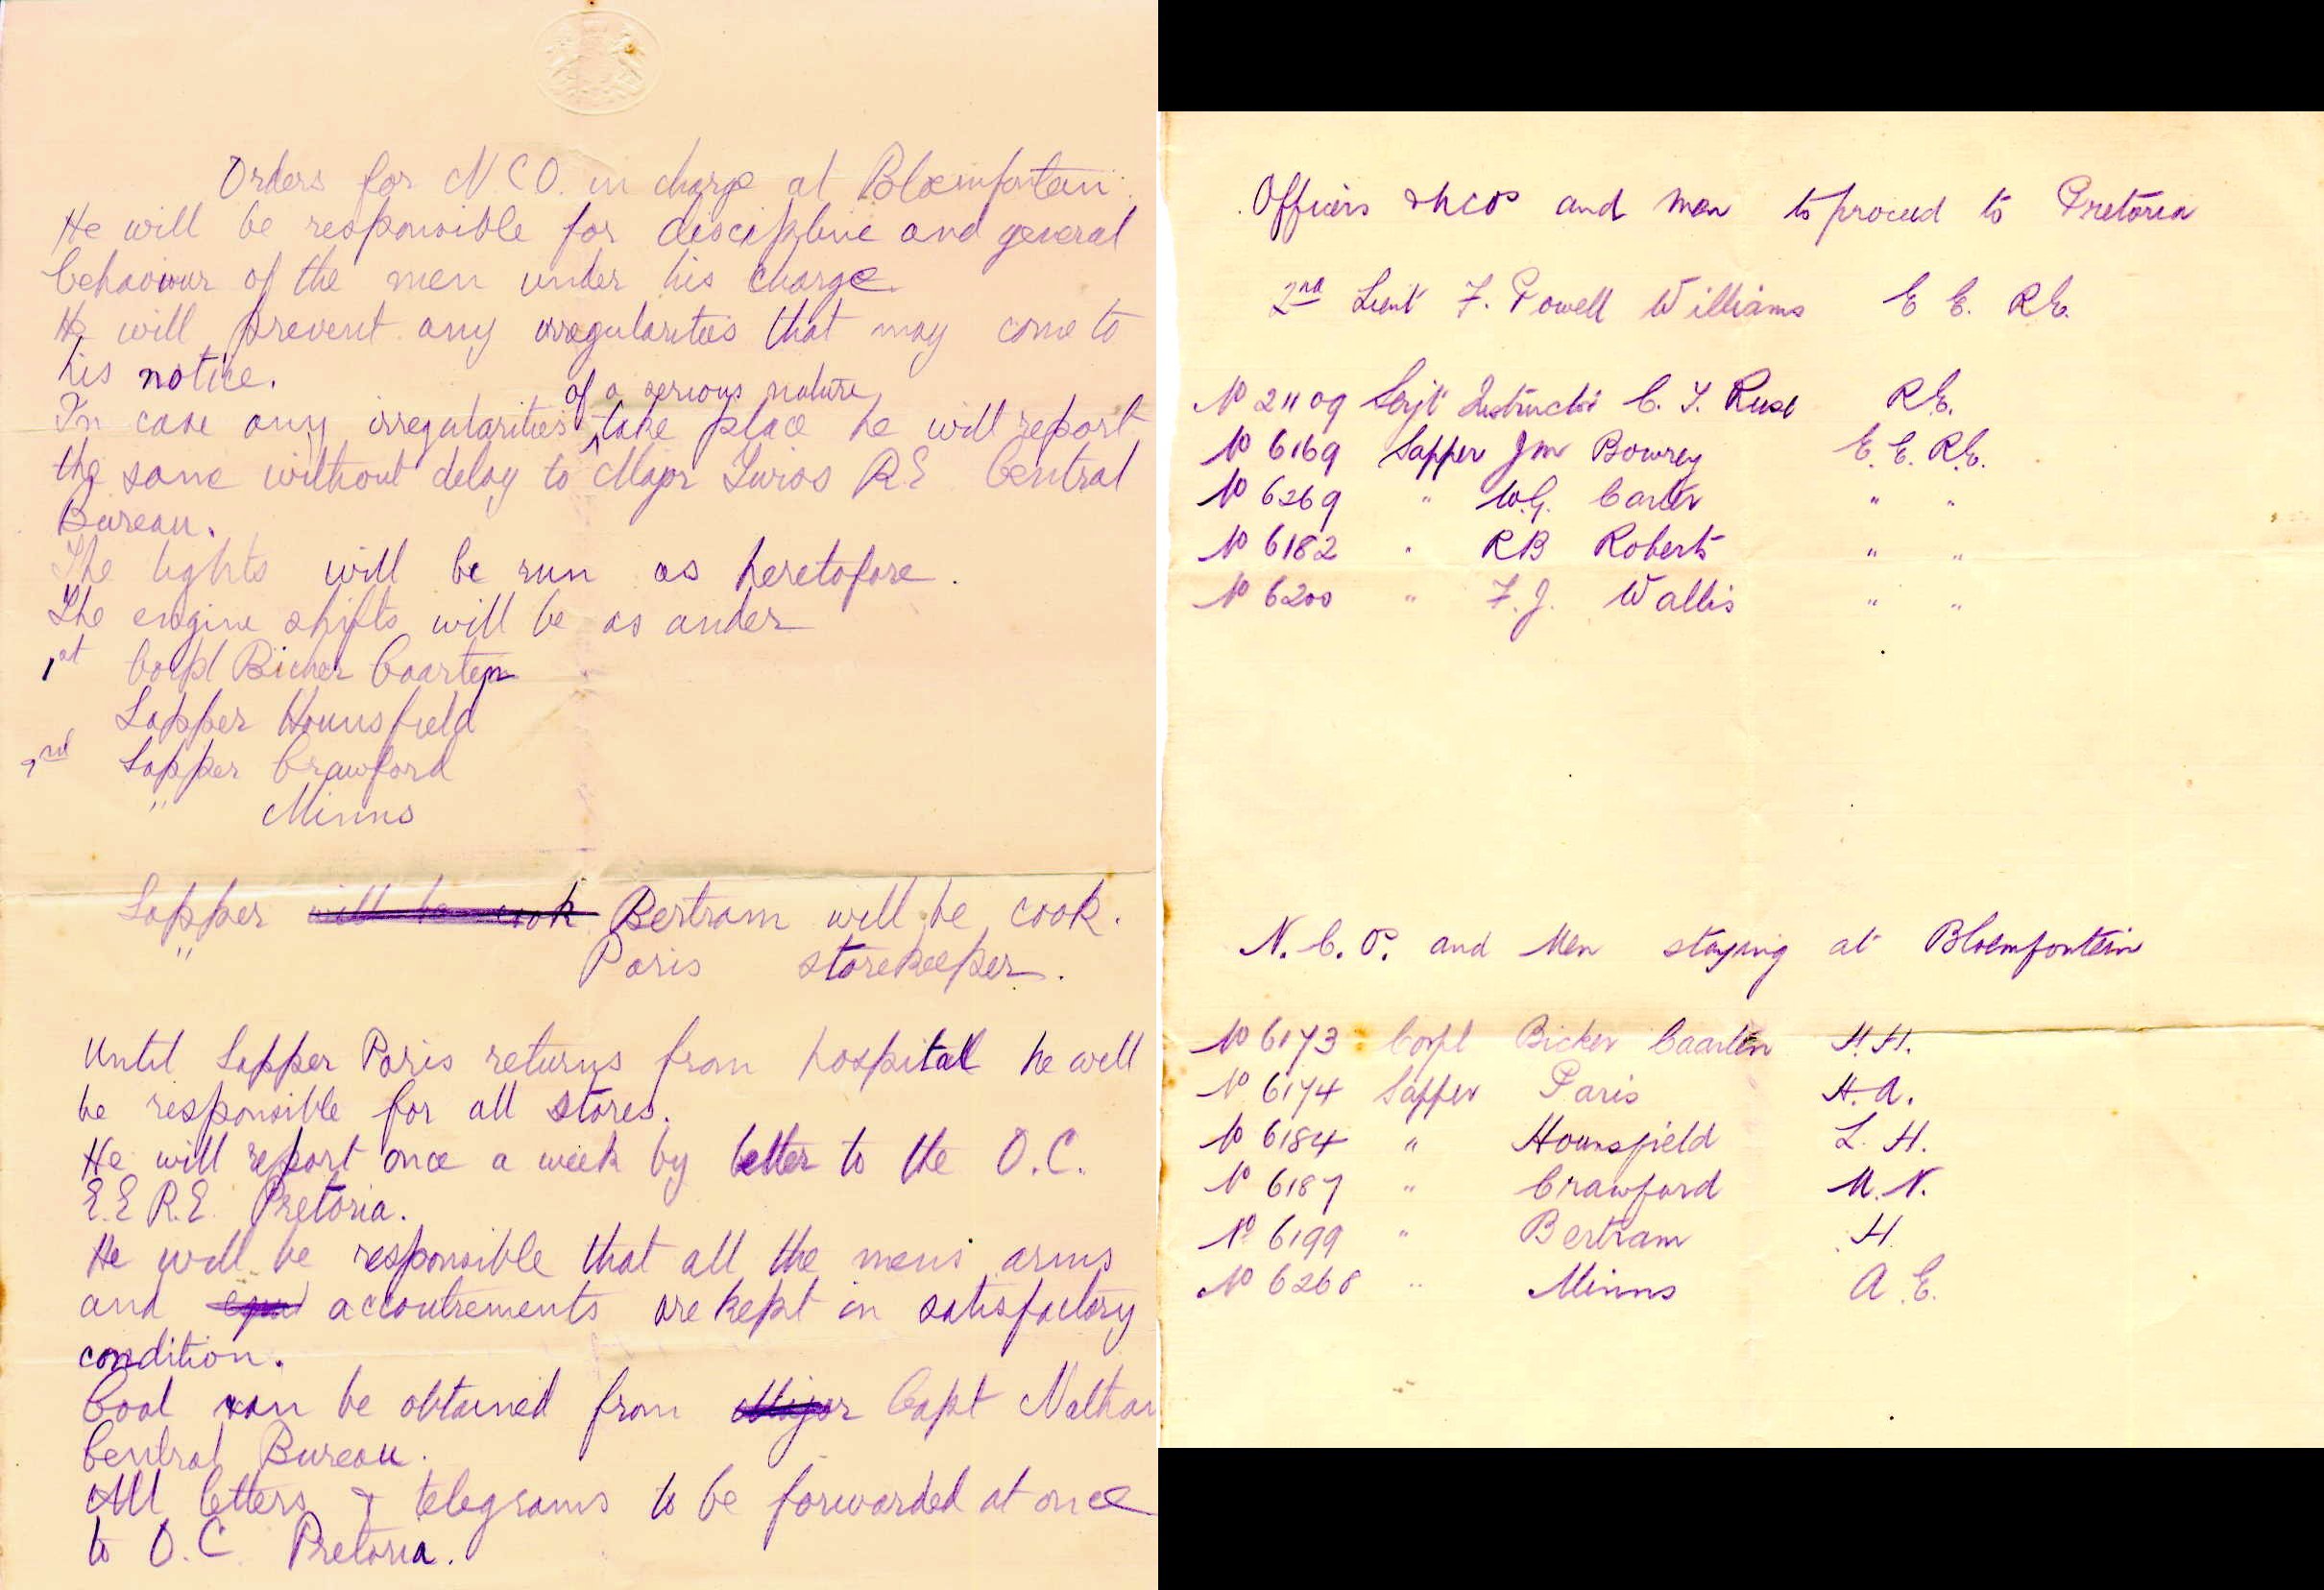 Orders for N.C.O. in charge at Bloemfontein.
He will be responsible for discipline and general
behaviour of the men under his charge.
He will prevent any irregularities that may come to
his notice.
of a serious nature
In case any irregularities take place he will report
the same without delay to Major R.E. Central
Bureau.
The lights will be run as heretofore.
The engine shifts will be as under
1st Corpl Bicker Caarten
Sapper Hounsfield
2nd Sapper Crawford
" Minns
Sapper will be cook Bertram will be cook.
" Paris storekeeper.
Until Sapper Paris returns from hospital he will
be responsible for all stores.
He will report once a week by letter to the O.C.
E.E R.E. Pretoria.
He will be responsible that all the mens arms
and accoutrements are kept in satisfactory
condition.
Coal can be obtained from Major Capt Nathan
Central Bureau.
All letters & telegrams to be forwarded at once
to O.C. Pretoria.
Officers & NCOs and Men to proceed to Pretoria
2nd Lieut F. Powell Williams E E. R.E.
No 21109 Serjt Instructor C. F. R.E.
No 6169 Sapper Jm Bowrey E. E. R.E.
No 6269 " W.G. Carter " "
No 6182 " RB Roberts " "
No 6200 " F. J. Wallis " "
N. C. O. and Men staying at Bloemfontein
No 6173 Corpl Bicker Caarten H.H.
No 6174 Sapper Paris H.A.
No 6184 " Hounsfield L. H.
No 6187 " Crawford M. N.
No 6199 " Bertram H.
No 6268 " Minns A. E.